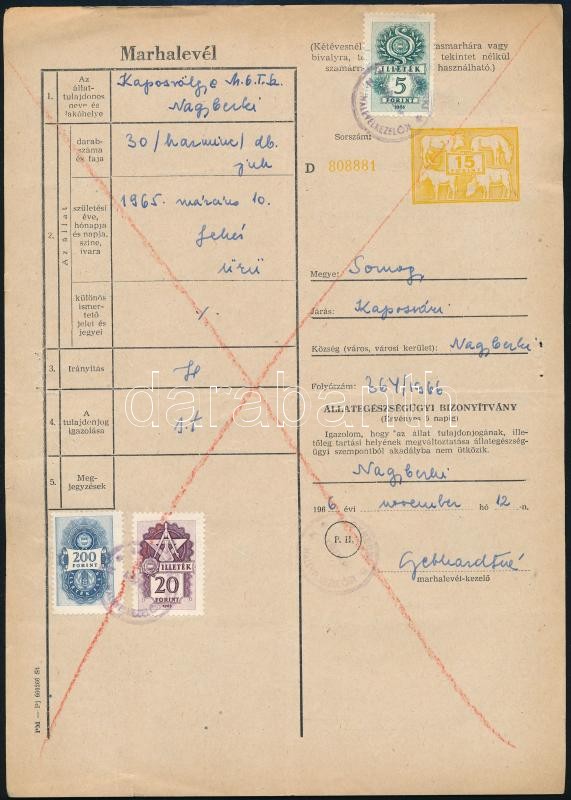 Marhalevél
1. Az állat-
tulajdonos
neve és
lakóhelye
Kaposvölgye M.G.T.Sz.
Nagyberki
2. Az állat
darab-
száma
és faja
30/harminc/ db.
juh
születési
éve,
hónapja
és napja,
színe,
ivara
1965. március 10.
fehér
ürü
különös
ismer-
tető
jelei és
jegyei
%
3. Irányítás
4. A
tulajdonjog
igazolása
5. Meg-
jegyzések
200
FORINT
ILLETÉK
ILLETÉK
20
FORINT
(Kétévesnél
vagy
bivalyra,
tekintet nélkül
használható.)
ILLETÉK
5
FORINT
Sorszám:
D 808881
15
Megye: Somogy
Járás: Kaposvári
Község (város, városi kerület): Nagyberki
Folyószám: 364/1966
ÁLLATEGÉSZSÉGÜGYI BIZONYÍTVÁNY
(Érvényes 5 napig)
Igazolom, hogy az állat tulajdonjogának, ille-
tőleg tartási helyének megváltoztatása állategészség-
ügyi szempontból akadályba nem ütközik.
Nagyberki
1966 évi november hó 12-n.
P. H.
Gebhardtné
marhalevél-kezelő
darabanth